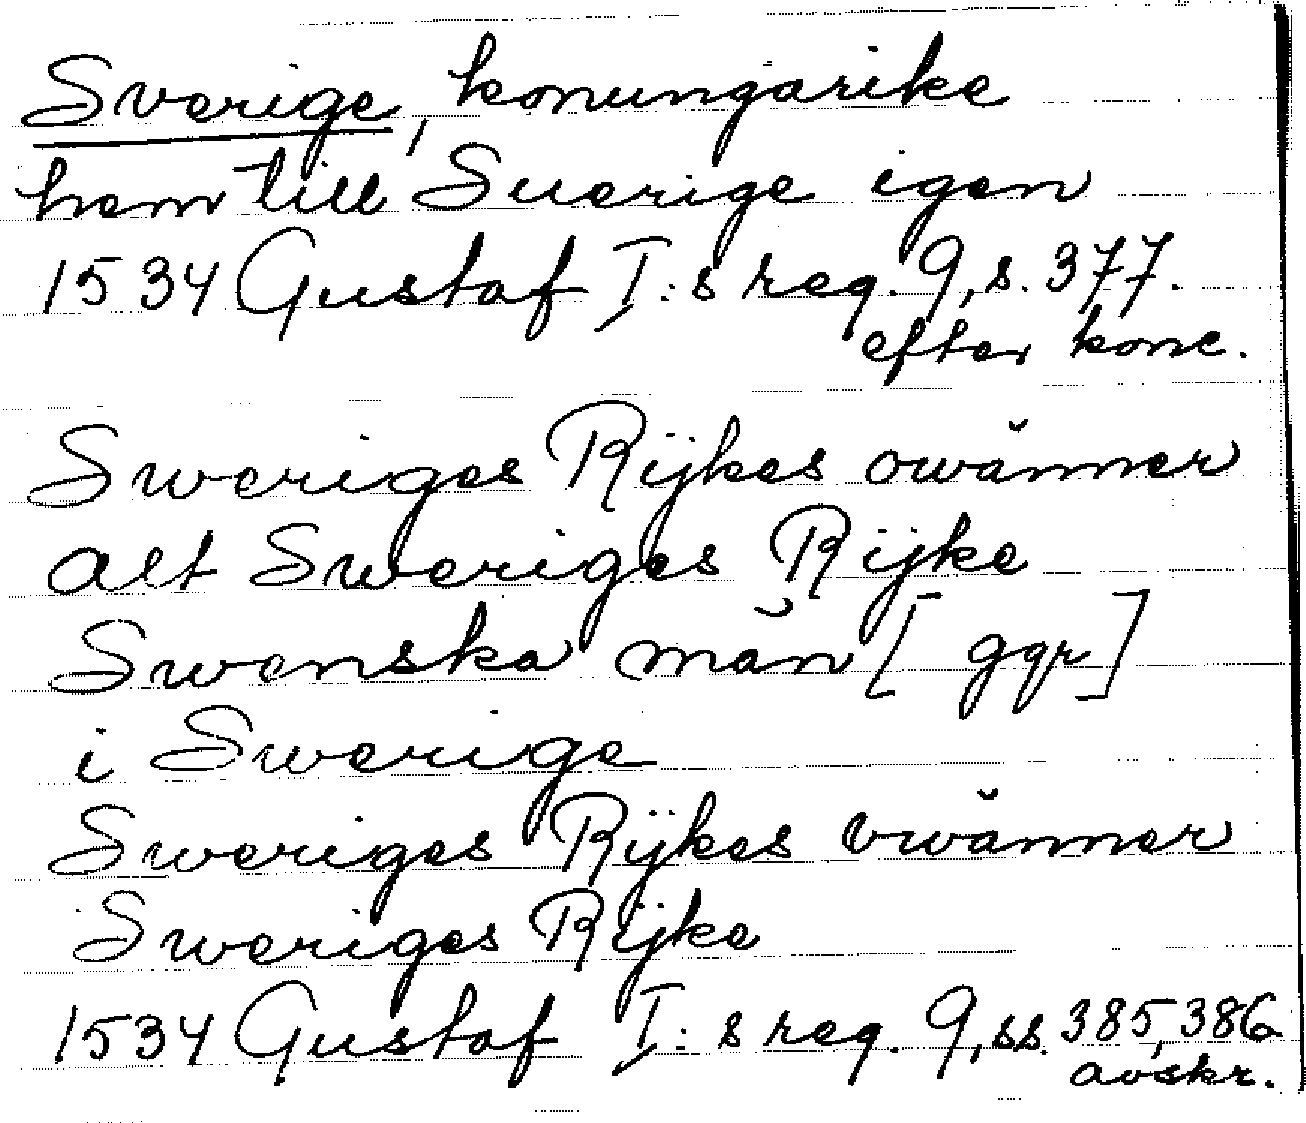 Sverige, konungarike
hem till Suerige igen
1534 Gustaf I:s reg. 9, s. 377.
efter konc.
Sweriges Rijkes owänner
alt Sweriges Rijke
Swenska män [ggr]
i Swerige
Sweriges Rijkes vwänner
Sweriges Rijke
1534 Gustaf I:s reg. 9, ss. 385, 386
avskr.